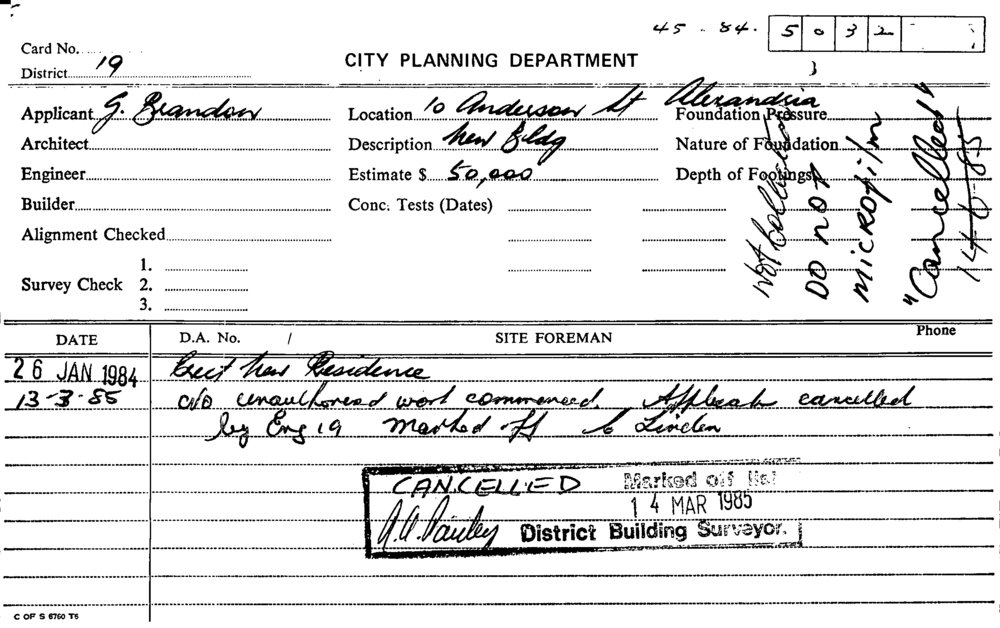 45 - 84. 5 0 3 2
Card No.
District 19
CITY PLANNING DEPARTMENT
Applicant G. Brandon Location 10 Anderson St Alexandria Foundation Pressure
Architect Description New Bldg Nature of Foundation
Engineer Estimate $ 50,000 Depth of Footings
Builder Conc. Tests (Dates)
Alignment Checked
Survey Check 1.
2.
3.
Not
DO NOT
MICROFILM
"Cancelled"
DATE D.A. No. / SITE FOREMAN Phone
26 JAN 1984 Erect New Residence
13-3-85 c/o unauthorised work commenced. cancelled
by Eng 19 Marked off
CANCELLED Marked off list
14 MAR 1985
District Building Surveyor.
C OF S 6760 T6